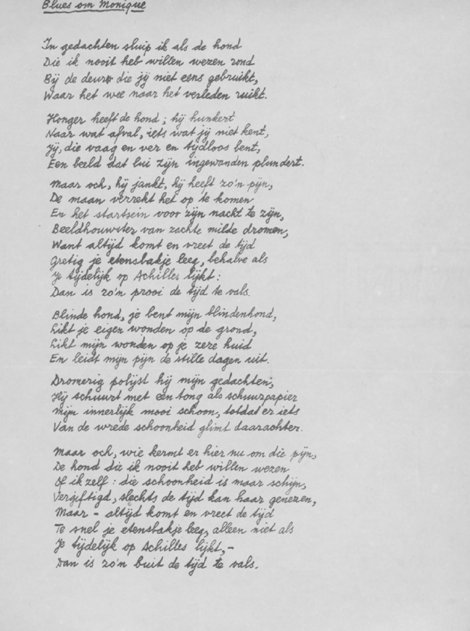 Blues om Monique
In gedachten sluip ik als de hond
Die ik nooit heb willen wezen rond
Bij de deur die jij niet eens gebruikt,
Waar het wee naar het verleden ruikt.
Honger heeft de hond; hij hunkert
Naar wat afval, iets wat jij niet kent,
Jij, die vaag en ver en tijdloos bent,
Een beeld dat lui zijn ingewanden plundert.
Maar och, hij jankt, hij heeft zo'n pijn,
De maan verrekt het op te komen
En het startsein voor zijn nacht te zijn,
Beeldhouwster van zachte milde dromen,
Want altijd komt en vreet de tijd
Gretig je etensbakje leeg, behalve als
Je tijdelijk op Achilles lijkt:
Dan is zo'n prooi de tijd te vals.
Blinde hond, je bent mijn blindenhond,
Likt je eigen wonden op de grond,
Likt mijn wonden op je zere huid
En leidt mijn pijn de stille dagen uit.
Dromerig polijst hij mijn gedachten,
Hij schuurt met een tong als schuurpapier
Mijn innerlijk mooi schoon, totdat er iets
Van de wrede schoonheid glimt daarachter.
Maar och, wie kermt er hier nu om die pijn,
De hond die ik nooit heb willen wezen
Of ikzelf: die schoonheid is maar schijn,
Vergiftigd, slechts de tijd kan haar genezen,
Maar - altijd komt en vreet de tijd
Te snel je etensbakje leeg, alleen niet als
Je tijdelijk op Achilles lijkt, -
Dan is zo'n buit de tijd te vals.